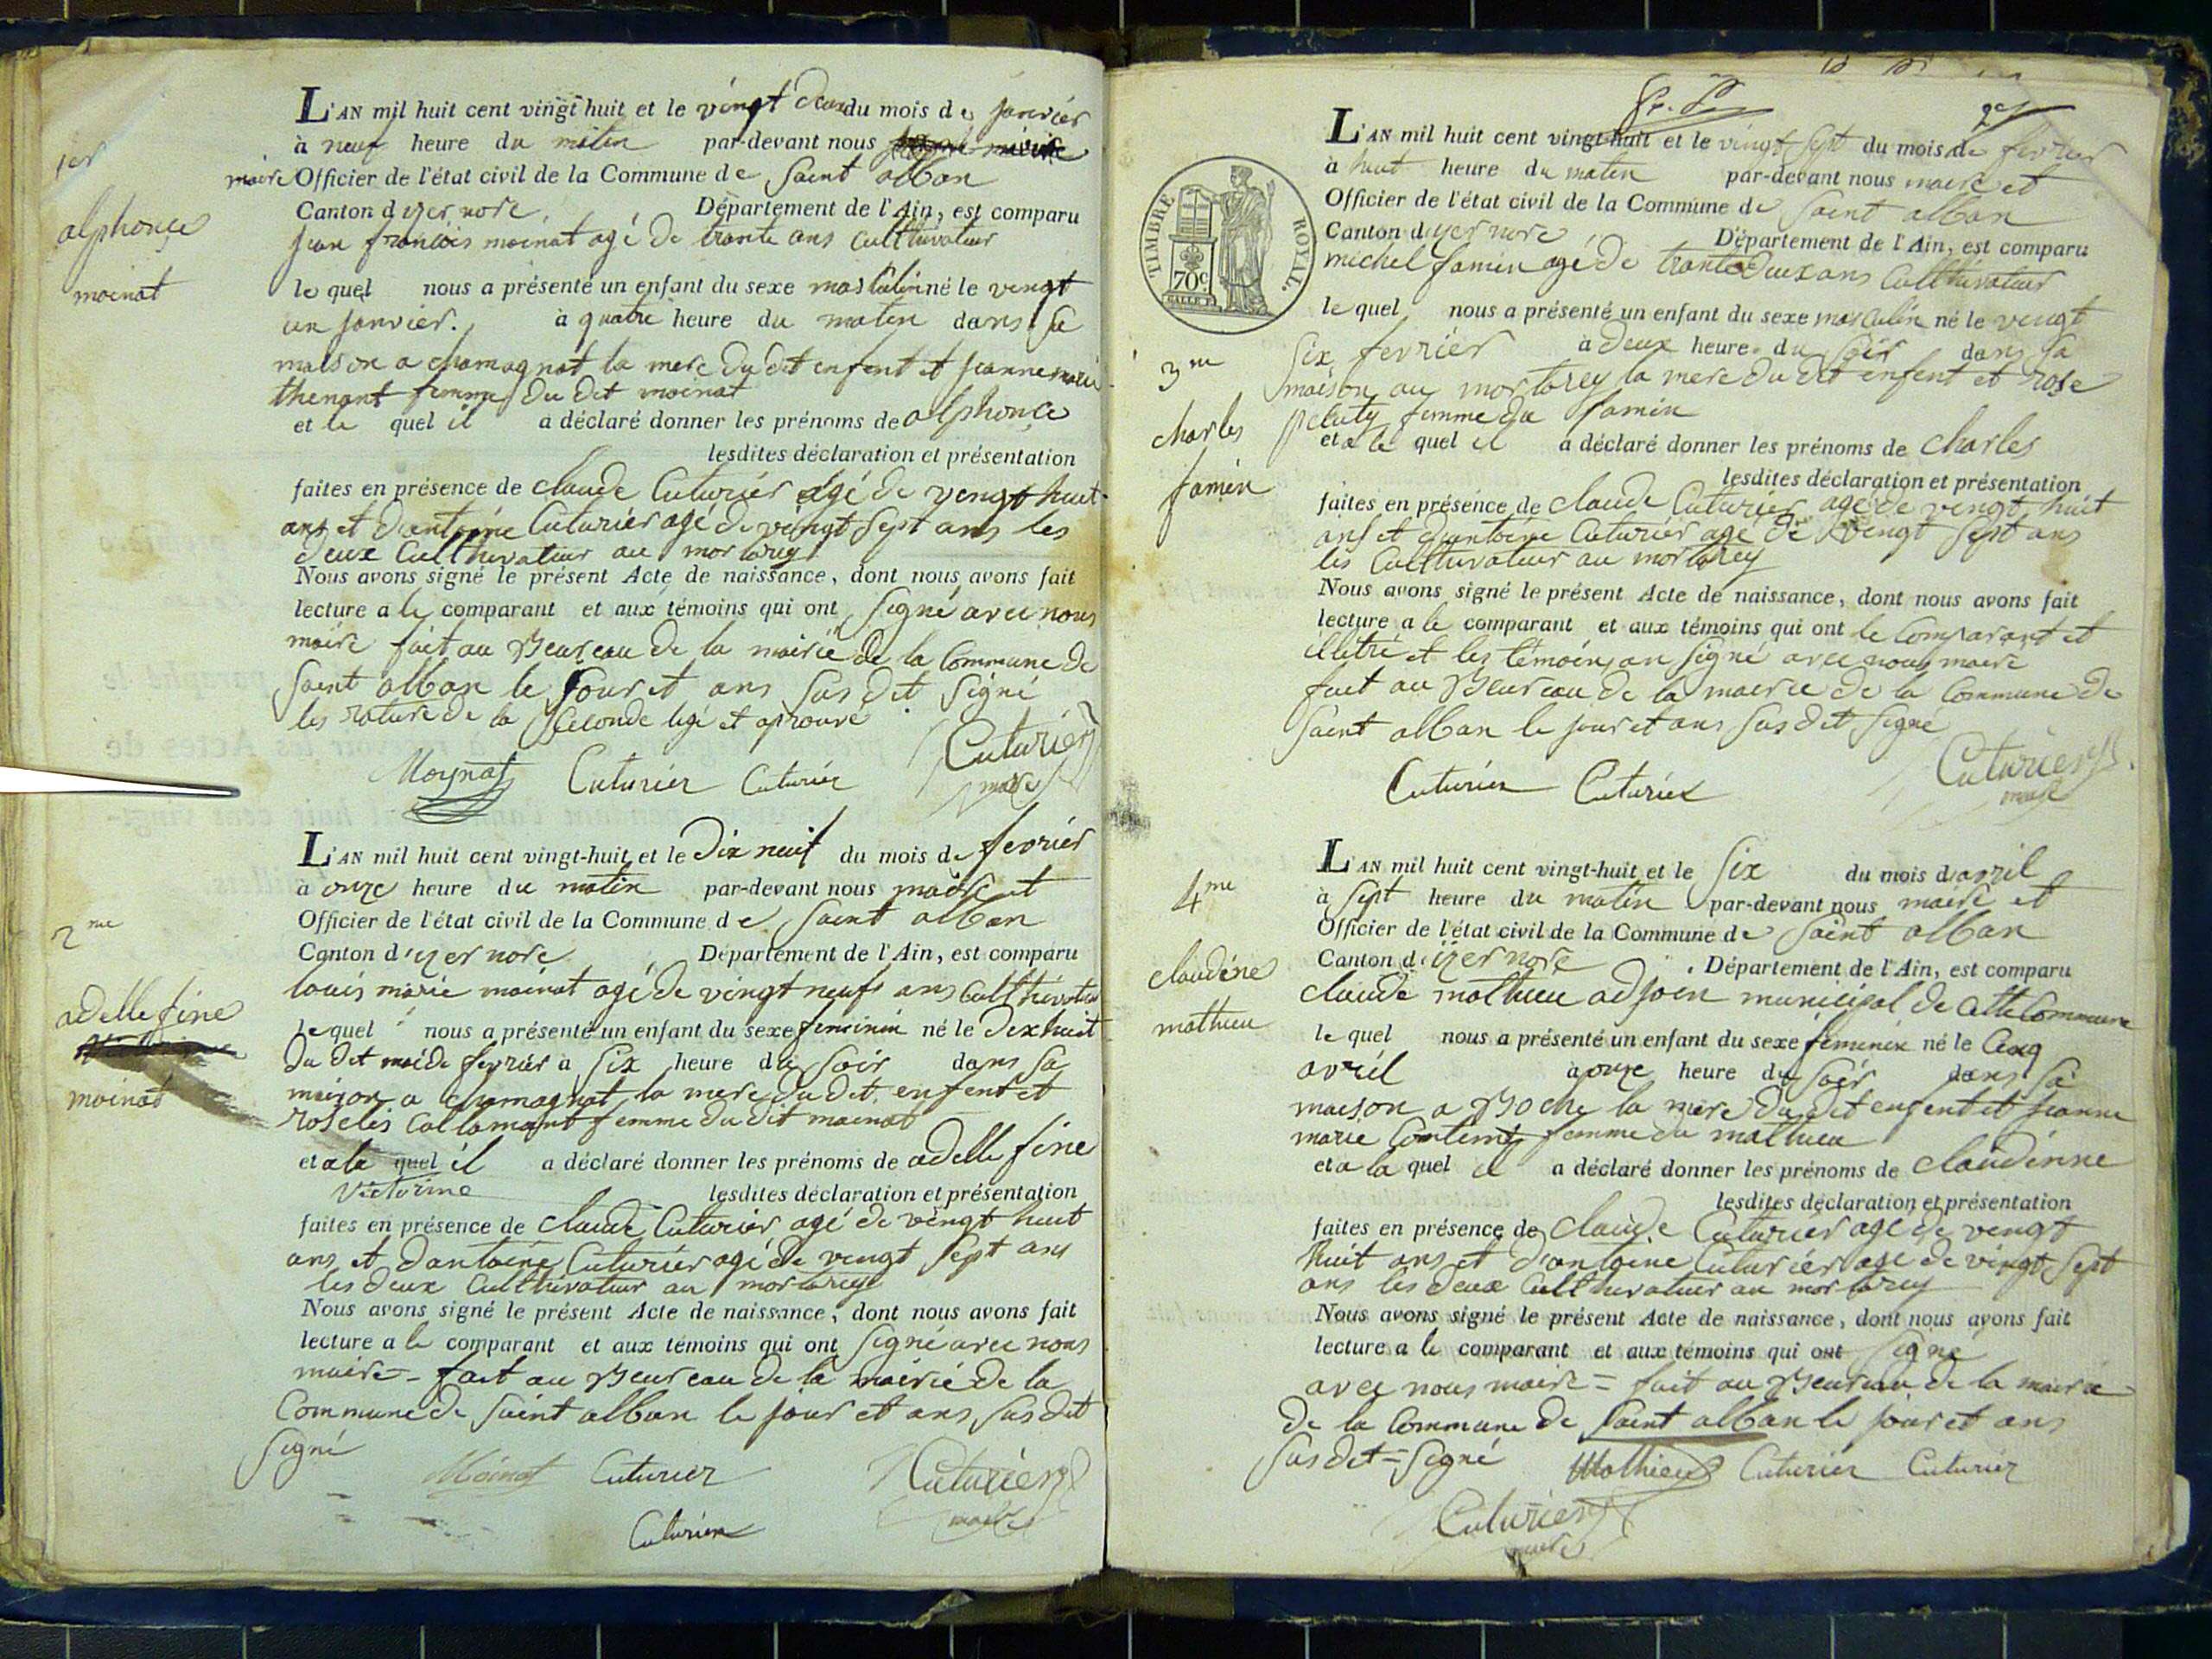 1er
alphonçe
moinat
L'AN mil huit cent vingt huit et le vingt deux du mois de janvier
à neuf heure du matin par-devant nous
maire Officier de l'état civil de la Commune de Saint alban
Canton d'izernore Département de l'Ain, est comparu
jean francois moinat agé de trante ans Culthivateur
le quel nous a présenté un enfant du sexe masculin né le vingt
un janvier. à quatre heure du matin dans sa
maison a chamagnat la mere du dit enfent et jeanne marie
thenant femme du dit moinat
et le quel il a déclaré donner les prénoms de alphonce
lesdites déclaration et présentation
faites en présence de claude Cuturier agé de vengt huit
ans et dantoine Cuturier agé de vingt sept ans les
deux Culthivateur au mortarey
Nous avons signé le présent Acte de naissance, dont nous avons fait
lecture a le comparant et aux témoins qui ont signé avec nous
maire fait au Beureau de la mairie de la Commune de
Saint alban le jour et ans susdit signé
les rature de la seconde ligé et aprouvé
Moynat Cuturier Cuturier Cuturier
maire
2me
adelle fine
moinat
L'AN mil huit cent vingt-huit et le dix neuf du mois de fevrier
à onze heure du matin par-devant nous maire et
Officier de l'état civil de la Commune de Saint alban
Canton d'izernore Département de l'Ain, est comparu
louis marie moinat agé de vingt neuf ans Culthivateur
le quel nous a présenté un enfant du sexe feminin né le dix huit
du dit moi de fevrier à six heure du soir dans sa
maison a chamagnat la mere du dit enfent et
roselis Callamant femme du dit moinat
et a la quel il a déclaré donner les prénoms de adelle fine
victorine lesdites déclaration et présentation
faites en présence de claude Cuturier agé de vingt huit
ans et dantoine Cuturier agé de vingt sept ans
les deux Culthivateur au mortarey
Nous avons signé le présent Acte de naissance, dont nous avons fait
lecture a le comparant et aux témoins qui ont signé avec nous
maire - fait au Beureau de la mairie de la
Commune de Saint alban le jour et ans susdit
signé
Moinat Cuturier Cuturier
maire
Cuturier
2e
TIMBRE ROYAL.
70c
3me
charles
famin
L'AN mil huit cent vingt-huit et le vingt sept du mois de fevrier
à huit heure du matin par-devant nous maire et
Officier de l'état civil de la Commune de Saint alban
Canton d'izernore Département de l'Ain, est comparu
michel famin agé de trante deux ans Culthivateur
le quel nous a présenté un enfant du sexe masculin né le vingt
six fevrier à deux heure du soir dans sa
maison au mortarey la mere du dit enfent et rose
femme du famin
et a le quel il a déclaré donner les prénoms de charles
lesdites déclaration et présentation
faites en présence de claude Cuturier agé de vingt huit
ans et dantoine Cuturier agé de vingt sept ans
les Culthivateur au mortarey
Nous avons signé le présent Acte de naissance, dont nous avons fait
lecture a le comparant et aux témoins qui ont le comparant et
illetré et les témoins on signé avec nous maire
fait au Beureau de la mairie de la Commune de
Saint alban le jour et ans susdit signé
Cuturier Cuturier Cuturier
maire
4me
claudine
mathieu
L'AN mil huit cent vingt-huit et le six du mois d'avril
à sept heure du matin par-devant nous maire et
Officier de l'état civil de la Commune de Saint alban
Canton d'izernore Département de l'Ain, est comparu
claude mathieu adjoin municipal de cette Commune
le quel nous a présenté un enfant du sexe féminin né le cinq
avril à onze heure du soir dans sa
maison a Boche la mere du dit enfent et jeanne
marie femme du mathieu
et a la quel il a déclaré donner les prénoms de claudinne
lesdites déclaration et présentation
faites en présence de claude Cuturier agé de vingt
huit ans et dantoine Cuturier agé de vingt sept
ans les deux Culthivateur au mortarey
Nous avons signé le présent Acte de naissance, dont nous avons fait
lecture a le comparant et aux témoins qui ont signé
avec nous maire = fait au Beureau de la mairie
de la Commune de Saint alban le jour et ans
susdit = signé Mathieu Cuturier Cuturier
Cuturier
maire